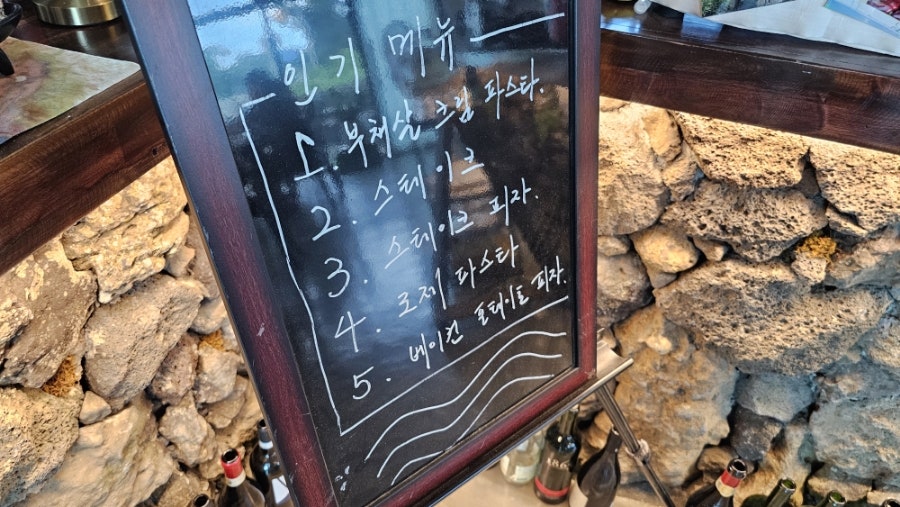 인기 메뉴
1. 부채살 크림 파스타.
2. 스테이크
3. 스테이크 피자.
4. 로제 파스타
5. 베이컨 포테이토 피자.